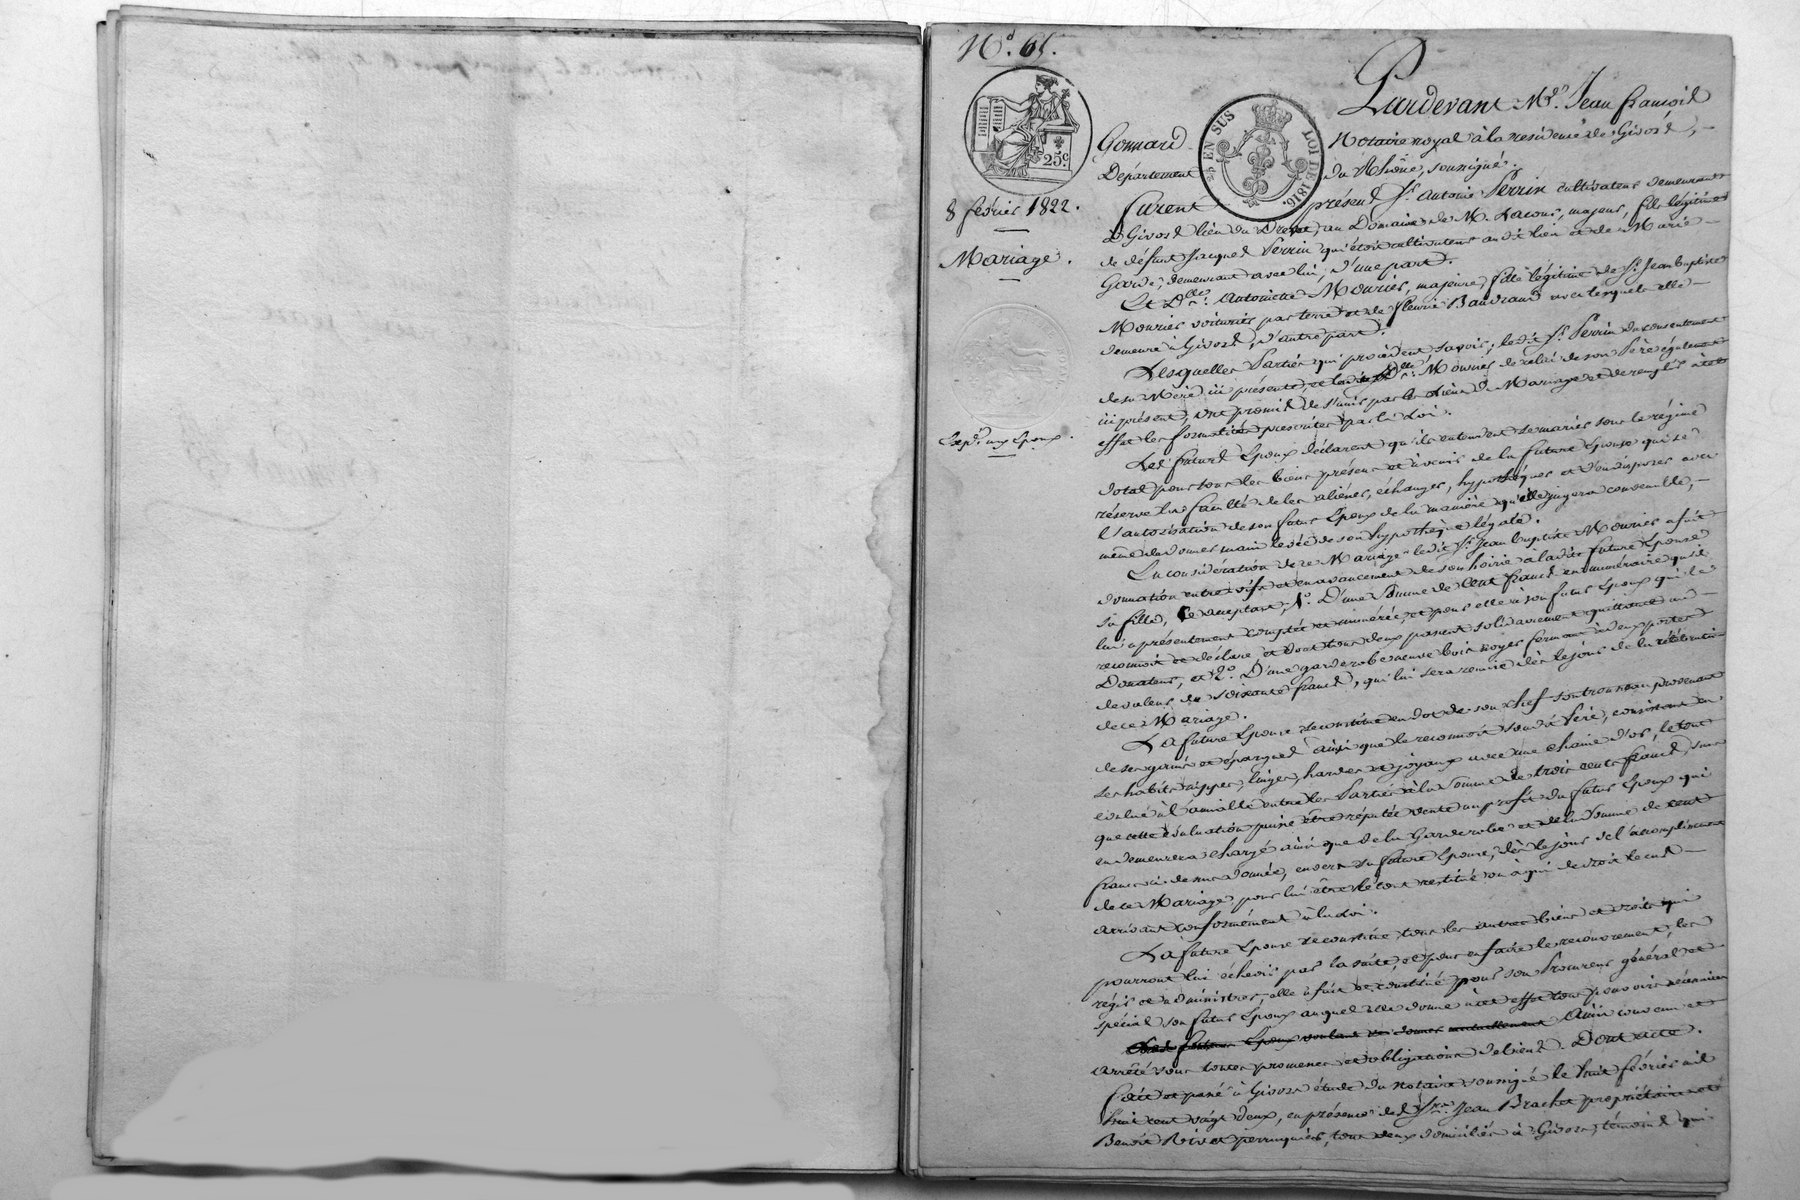 N.° 65.
25c
25 EN SUS
LOI DE 1816.
8 février 1822.
Mariage.
Exp.on aux Epoux.
Pardevant M.e Jean françois
Gonnard Notaire royal à la residence de Givors,
Département du Rhône, soussigné.
furent présens S.r Antoine Perrin cultivateur demeurant
à Givors lieu du au Domaine de M. Lacour, majeur, fils légitime
de défunt Jacques Perrin qu'étoit cultivateur au dit lieu et de Marie
Garde, demeurant avec lui, d'une part.
Et D.lle Antoinette Mourier, majeure, fille légitime de S.r Jean baptiste
Mourier voiturier par terre et de fleurie Baudrand avec lesquels elle
demeure à Givors, d'autre part.
Lesquelles Parties qui procèdent savoir; ledit S.r Perrin du consentement
de sa Mère ici présente, et la d.e D.lle Mourier de celui de son Père également
ici présent, ont promis de s'unir par les liens du Mariage et de remplir à cet
effet les formalités prescrites par la Loi.
Les futurs Epoux déclarent qu'ils entendent se marier sous le régime
dotal pour tous les biens présens et à venir de la future Epouse qui se
réserve la faculté de les aliéner, échanger, hypothéquer et d'en disposer avec
l'autorisation de son futur Epoux de la manière qu'elle jugera convenable,
même de donner main levée de son hypothèque légale.
En considération de ce Mariage ledit S.r Jean baptiste Mourier a fait
donnation entre vifs et en avancement de son hoirie à ladite future Epouse
sa fille, ce acceptant, 1.° D'une somme de Cent francs en numéraire qu'il
lui a présentement comptée et numérée, et pour elle à son futur Epoux qui le
reconnoit et déclare et dont tous deux passent solidairement quittance au
Donateur, et 2.° D'une garderobe neuve bois noyer fermant à deux portes
de valeur de soixante francs, qui lui sera remise dès le jour de la célébration
de ce Mariage.
La future Epouse se constitue en dot de son chef son trousseau provenant
de ses gains et épargnes ainsi que le reconnoit son dit Père, consistant en
ses habits, nippes, linges, hardes et joyaux avec une chaine d'or, le tout
évalué à l'amiable entre les Parties à la Somme de trois cents francs, sans
que cette évaluation puisse être réputée vente au profit du futur Epoux qui
en demeurera chargé ainsi que de la Garderobe et de la Somme de cent
francs ci dessus donnée, envers sa future Epouse, dès le jour de l'accomplissement
de ce Mariage, pour lui être le tout restitué ou à qui de droit le cas
arrivant conformément à la Loi.
La future Epouse se constitue tous les autres biens et droits qui
pourront lui échoir par la suite, et pour en faire le recouvrement, les
régir et administrer, elle a fait et constitué pour son Procureur général et
spécial son futur Epoux auquel elle donne à cet effet tous pouvoirs nécessaires
Les futurs Epoux voulant se donner mutuellement Ainsi convenu et
arrêté sous toutes promesses et obligations de biens. Dont acte.
fait et passé à Givors étude du notaire soussigné le huit février mil
huit cent vingt deux, en présence des S.rs Jean Brachet propriétaire et
Benoit Rivat perruquier, tous deux domiciliés à Givors, témoins qui